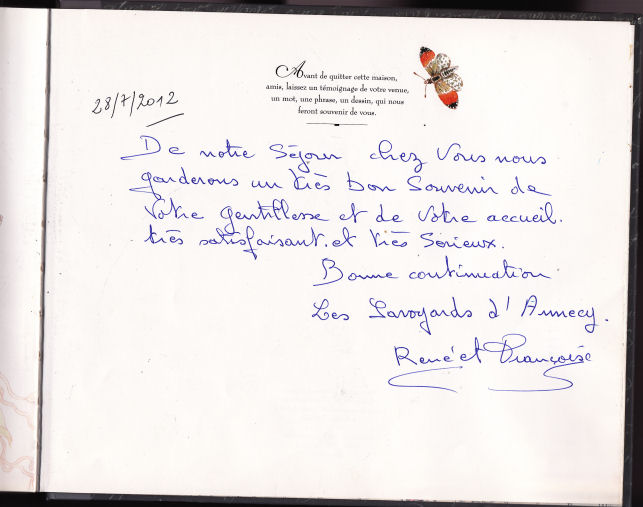 Avant de quitter cette maison,
amis, laissez un témoignage de votre venue,
un mot, une phrase, un dessin, qui nous
feront souvenir de vous.
28/7/2012
De notre Séjour chez Vous nous
garderons un très bon Souvenir de
Votre gentillesse et de Votre accueil.
très satisfaisant. et très Sérieux.
Bonne continuation
Les Savoyards d'Annecy.
René et Françoise